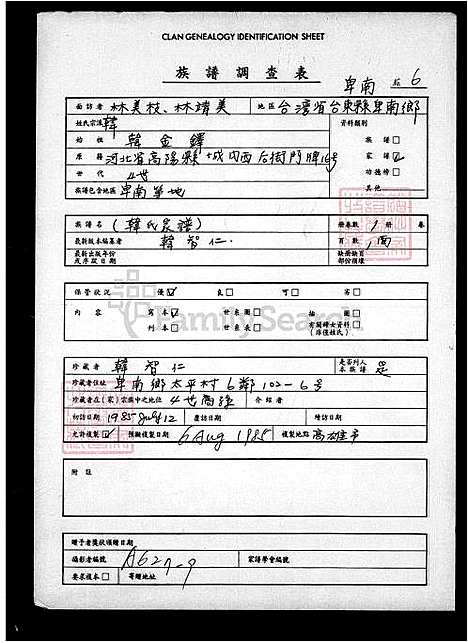 CLAN GENEALOGY IDENTIFICATION SHEET
族譜調查表
卑南 6
面訪者 林美枝、林靖美 地區 台灣省台東縣卑南鄉
姓氏宗漢 韓 資料類別
始祖 韓金鐸 族譜□
原籍 河北省高陽縣城內西后街門牌16号 家譜☑
世代 4世 功德榜□
族譜包含地區 卑南等地 其他
族譜名 (韓氏家譜) 册卷數 1 册 卷
最新版本編纂者 韓智仁 頁數 1面
最新出版年份或序跋日期 缺册缺頁部份損壞
保管狀況 優☑ 良□ 可□ 劣□
內容 寫本☑ 世系圖□ 插圖□
刊本□ 世系表□ 有關婦女資料(非僅姓氏)□
FamilySearch
珍藏者 韓智仁 是否列入本族譜 是
珍藏者住址 卑南鄉太平村6鄰102-6号
珍藏者在(家)宗族中之地位 4世 介紹者
初訪日期 1985 July 12 複訪日期 續訪日期
允許複製☑ 預擬複製日期 6 Aug 1985 複製地點 高雄市
附註
贈予者獎狀頒贈日期
攝影者編號 A627-9 家譜學會編號
要求複本□ 寄贈地址